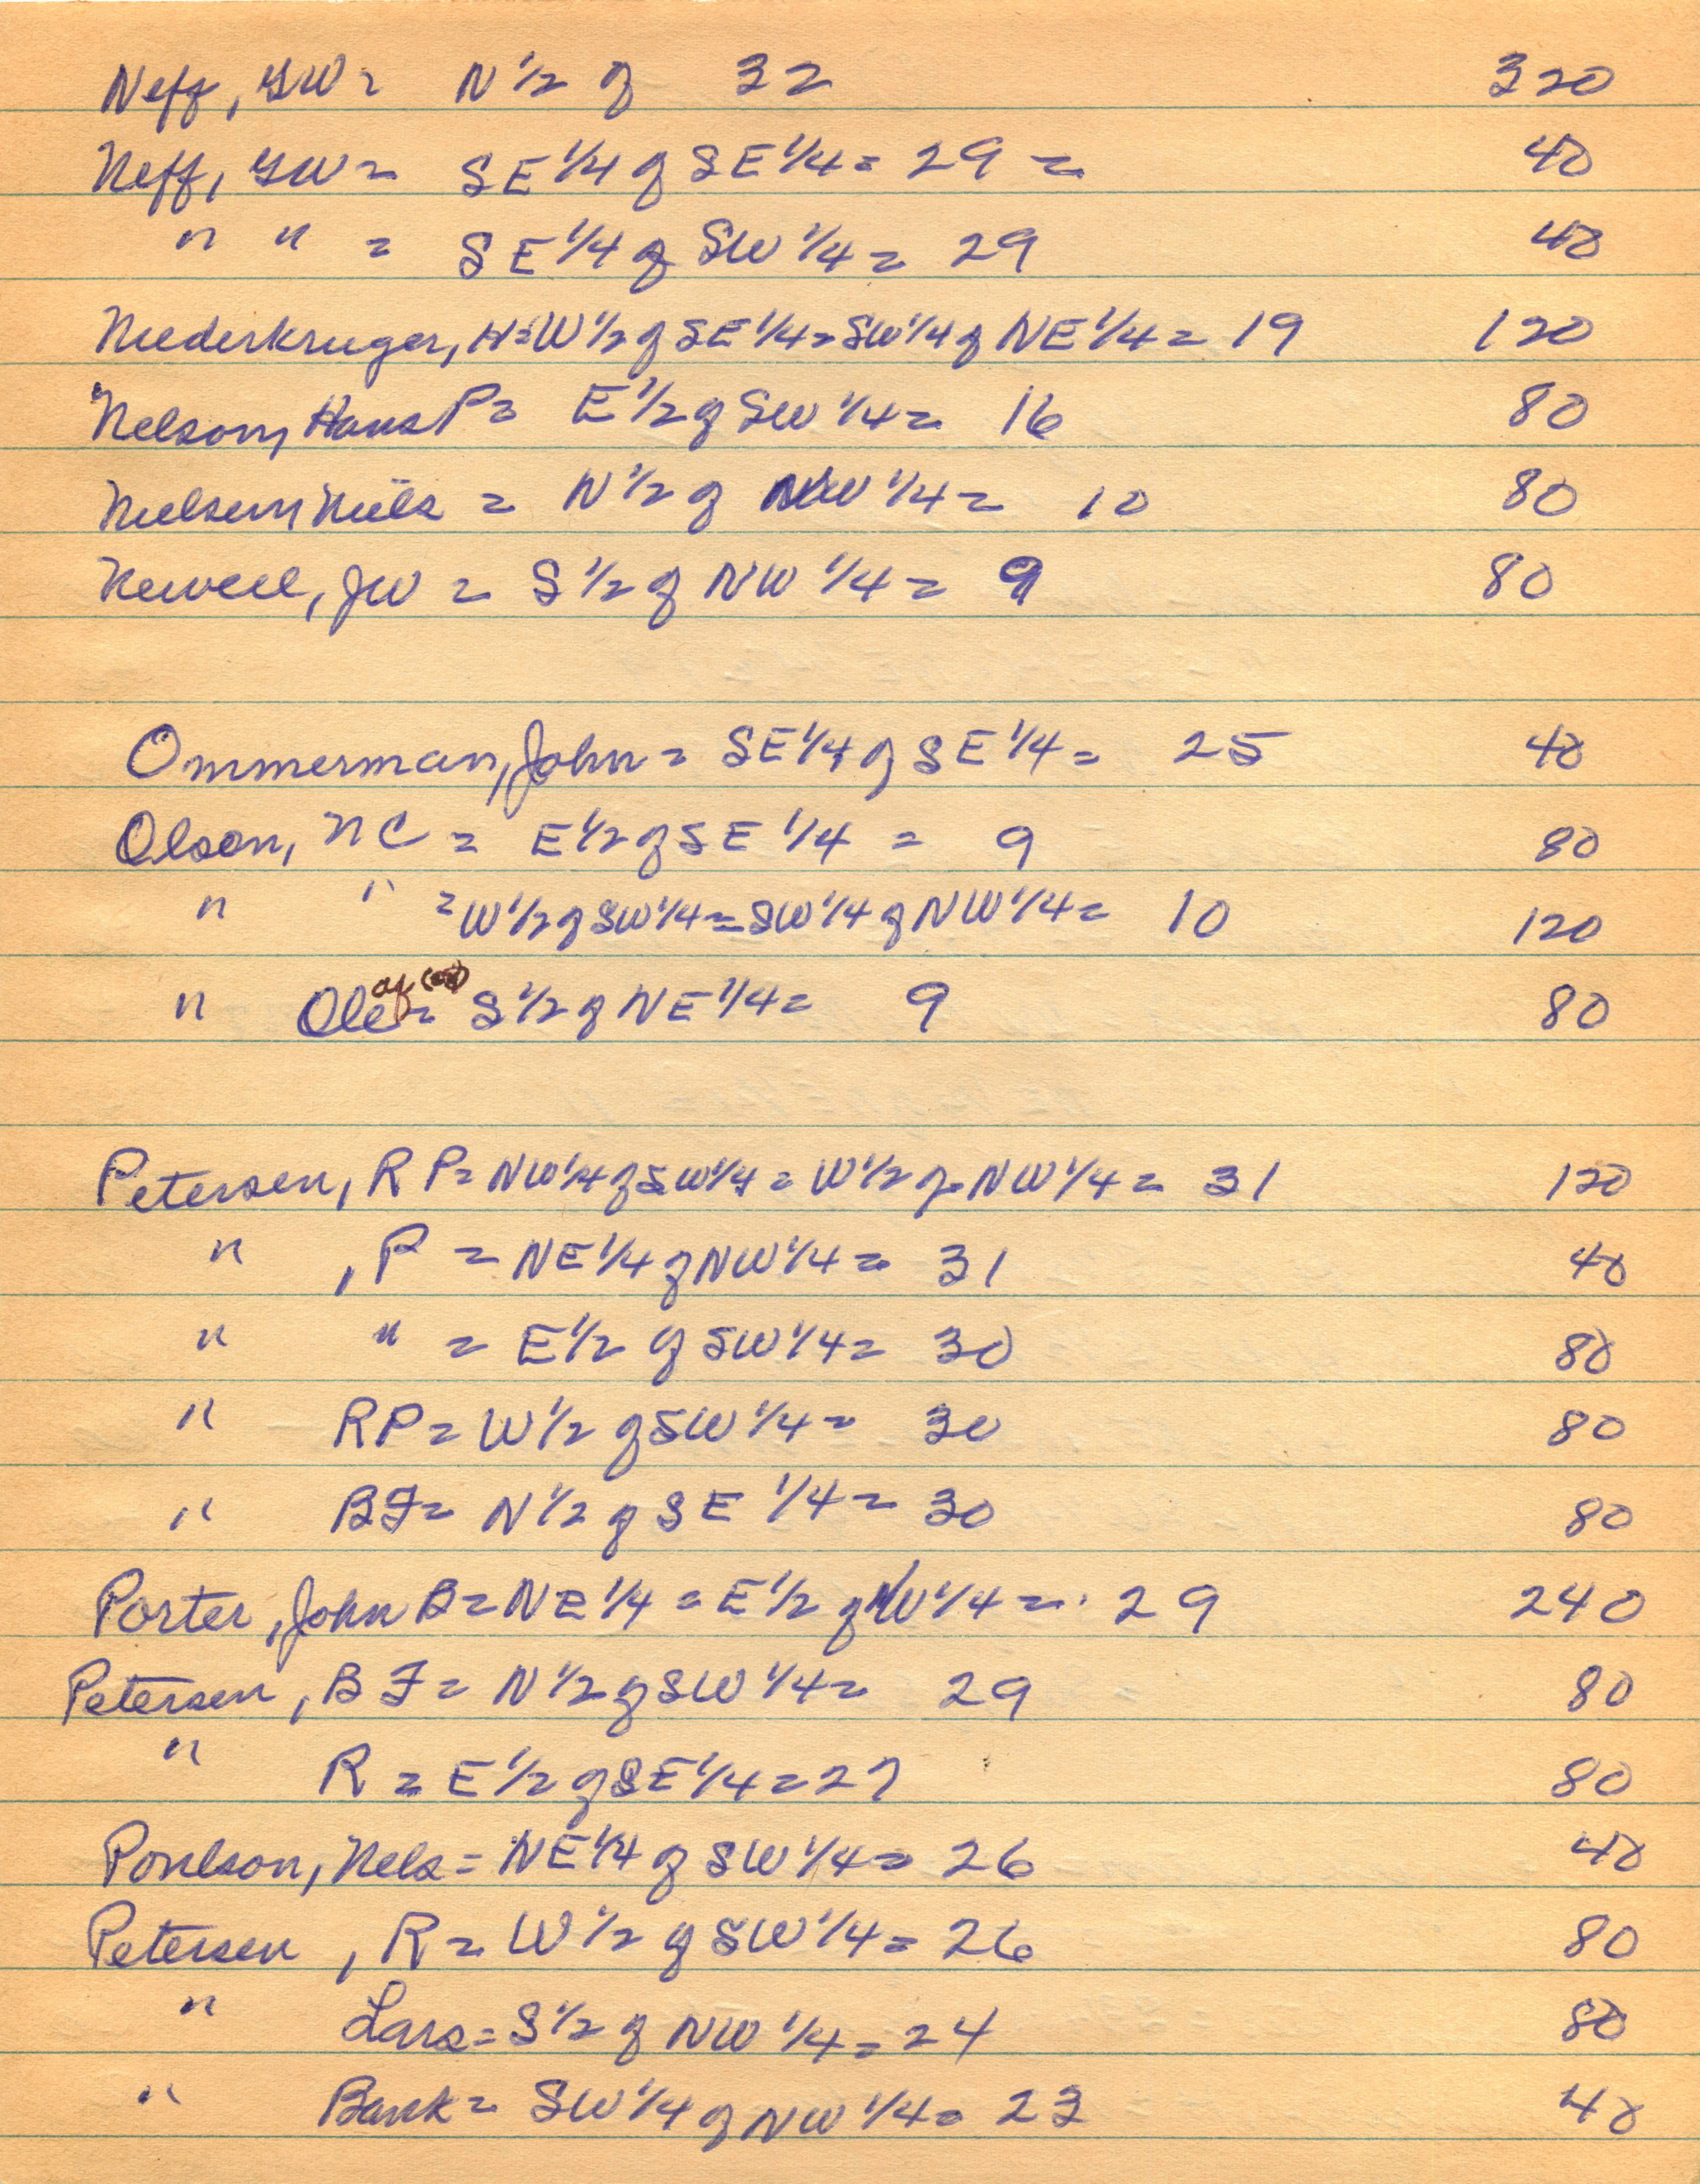 Neff, GW = N 1/2 of 32 320
Neff, GW = SE 1/4 of SE 1/4 = 29 = 40
" " = SE 1/4 of SW 1/4 = 29 40
Niederkruger, H = W 1/2 of SE 1/4 = SW 1/4 of NE 1/4 = 19 120
Nelson, Hans P = E 1/2 of SW 1/4 = 16 80
Nielsen, Niels = N 1/2 of NW 1/4 = 10 80
Newell, JW = S 1/2 of NW 1/4 = 9 80
Ommerman, John = SE 1/4 of SE 1/4 = 25 40
Olson, NC = E 1/2 of SE 1/4 = 9 80
" " = W 1/2 of SW 1/4 = SW 1/4 of NW 1/4 = 10 120
" Ole = S 1/2 of NE 1/4 = 9 80
Petersen, R P = NW 1/4 of SW 1/4 = W 1/2 of NW 1/4 = 31 120
" , P = NE 1/4 of NW 1/4 = 31 40
" " = E 1/2 of SW 1/4 = 30 80
" RP = W 1/2 of SW 1/4 = 30 80
" BF = N 1/2 of SE 1/4 = 30 80
Porter, John B = NE 1/4 = E 1/2 of NW 1/4 = 29 240
Petersen, B F = N 1/2 of SW 1/4 = 29 80
" R = E 1/2 of SE 1/4 = 27 80
Poulson, Nels = NE 1/4 of SW 1/4 = 26 40
Petersen, R = W 1/2 of SW 1/4 = 26 80
" Lars = S 1/2 of NW 1/4 = 24 80
" Bank = SW 1/4 of NW 1/4 = 23 40